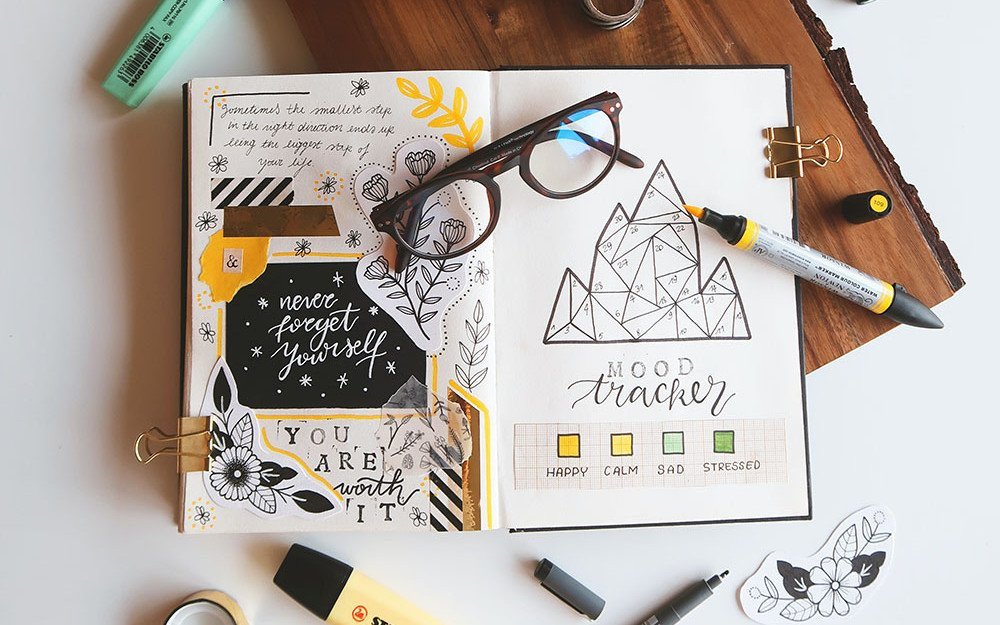 Sometimes the smallest step
in the right direction ends up
being the biggest step of
your life.
&
never
forget
yourself
YOU
ARE
worth
IT
MOOD
tracker
HAPPY CALM SAD STRESSED
STABILO BOSS
WATER COLOUR MARKER